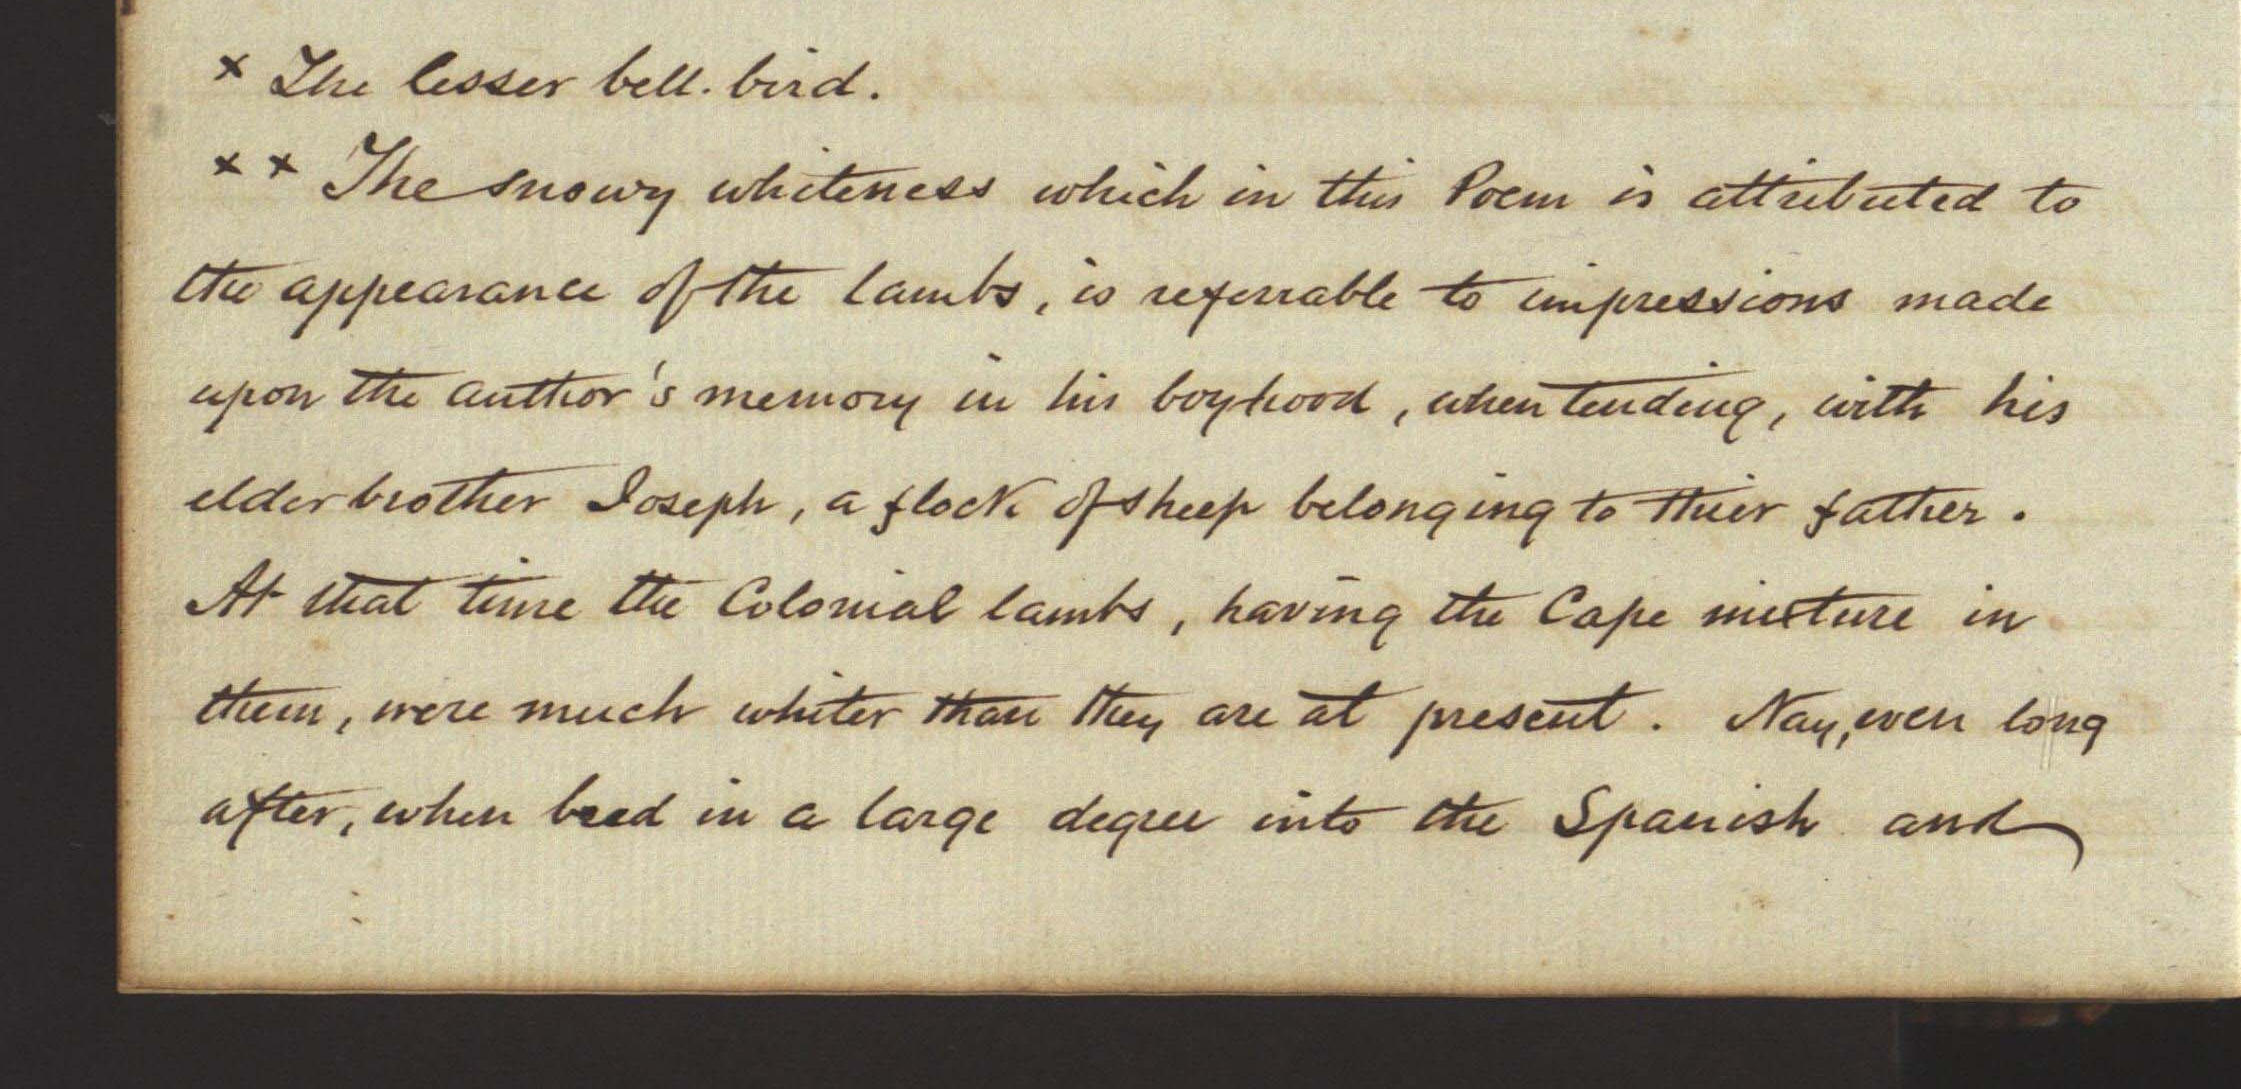 x The lesser bell-bird.
x x The snowy whiteness which in this Poem is attributed to
the appearance of the lambs, is referrable to impressions made
upon the author's memory in his boyhood, when tending, with his
elder brother Joseph, a flock of sheep belonging to their father.
At that time the Colonial lambs, having the Cape mixture in
them, were much whiter than they are at present. Nay, even long
after, when bred in a large degree into the Spanish and